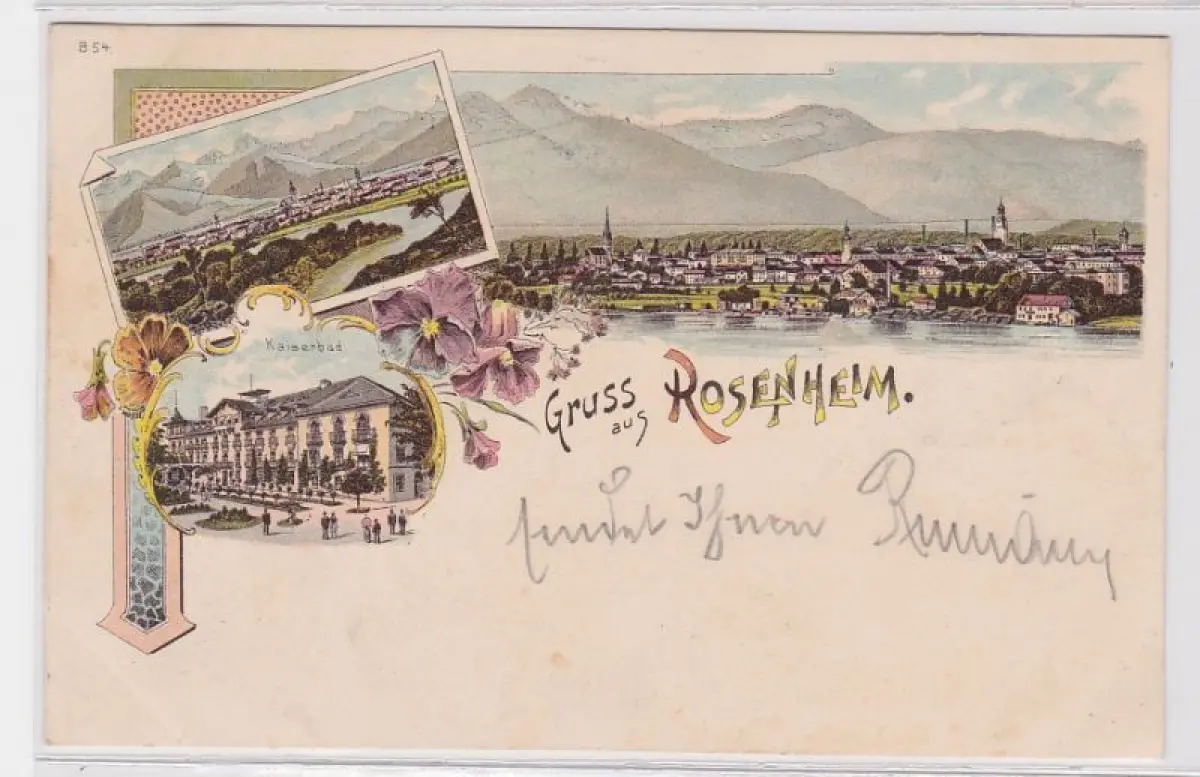 B 54
Kaiserbad
Gruss
aus
ROSENHEIM.
sendet Ihnen